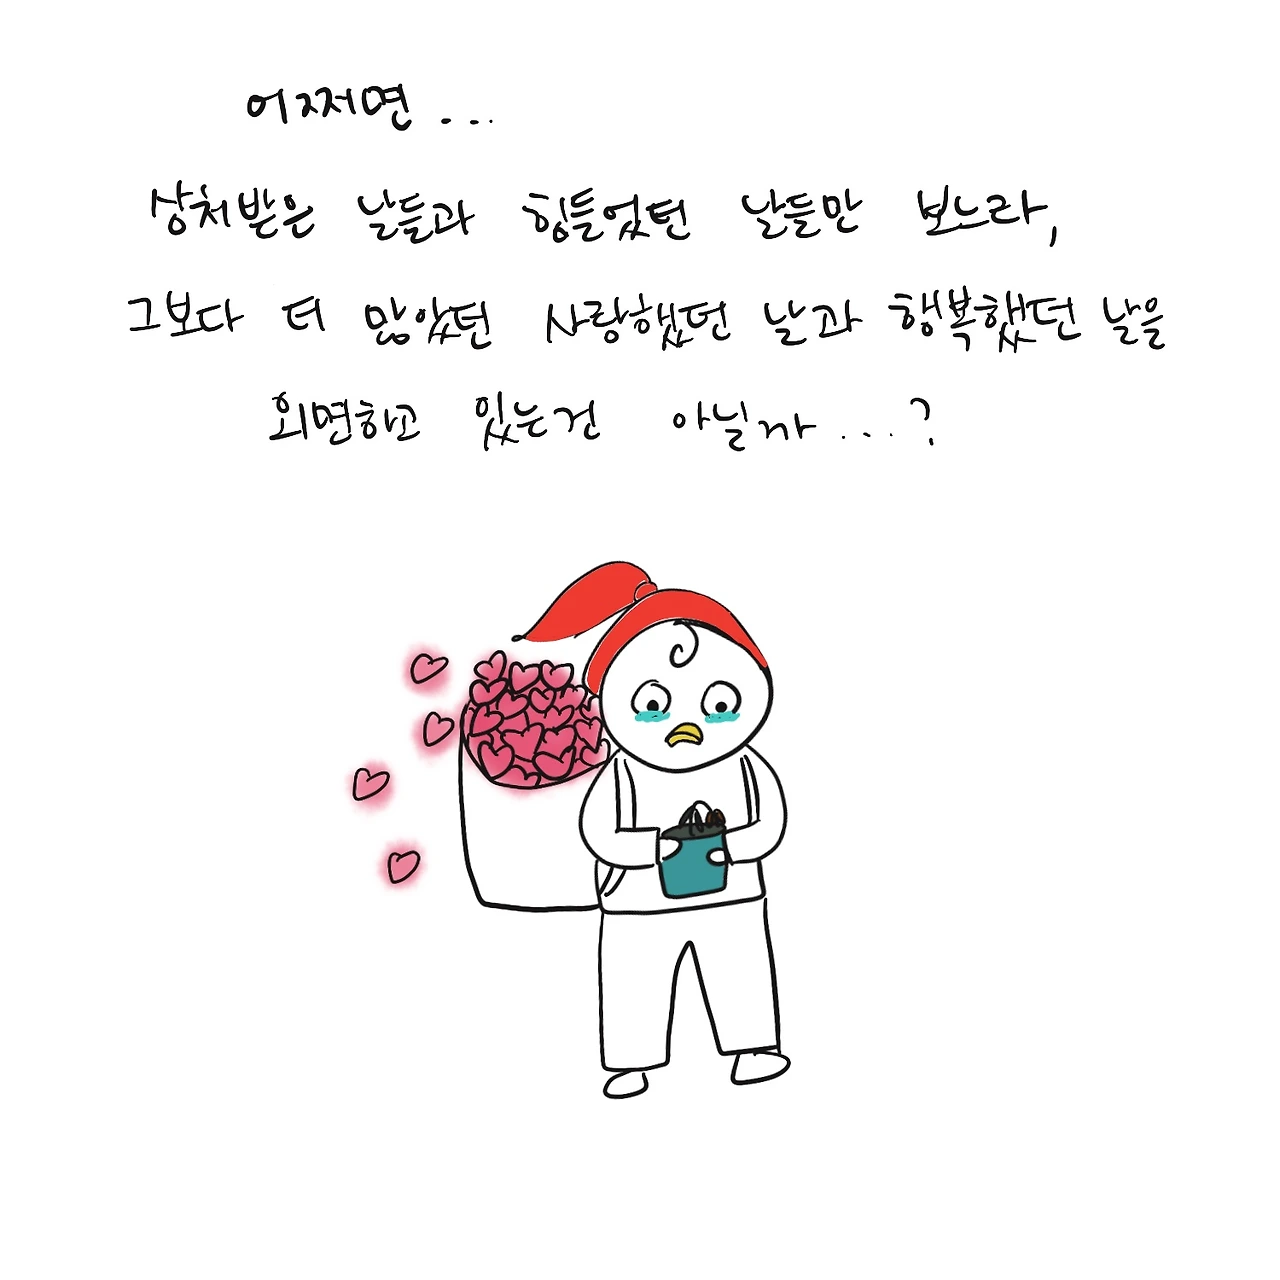 어쩌면...
상처받은 날들과 힘들었던 날들만 보느라,
그보다 더 많았던 사랑했던 날과 행복했던 날을
외면하고 있는건 아닐까...?